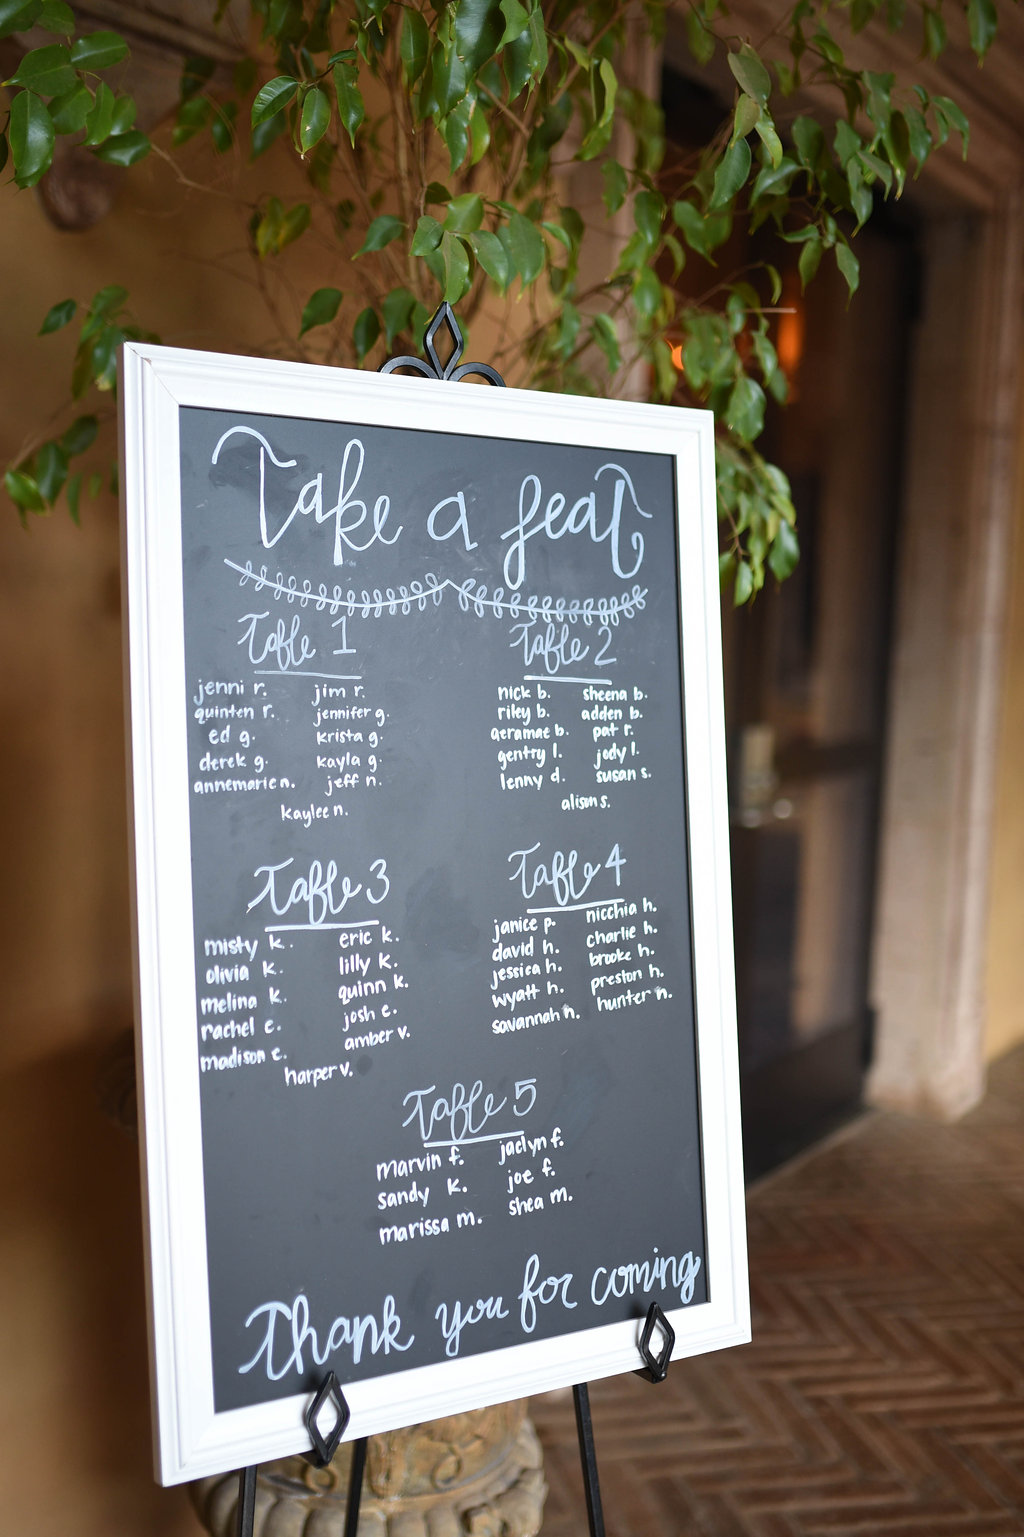 Take a seat
Table 1
jenni r. jim r.
quinten r. jennifer g.
ed g. krista g.
derek g. kayla g.
annemarie n. jeff n.
kaylee n.
Table 2
nick b. sheena b.
riley b. adden b.
aeramae b. pat r.
gentry l. jody l.
lenny d. susan s.
alison s.
Table 3
misty k. eric k.
olivia k. lilly k.
melina k. quinn k.
rachel e. josh e.
madison e. amber v.
harper v.
Table 4
janice p. nicchia h.
david h. charlie h.
jessica h. brooke h.
wyatt h. preston h.
savannah h. hunter n.
Table 5
marvin f. jaclyn f.
sandy k. joe f.
marissa m. shea m.
Thank you for coming